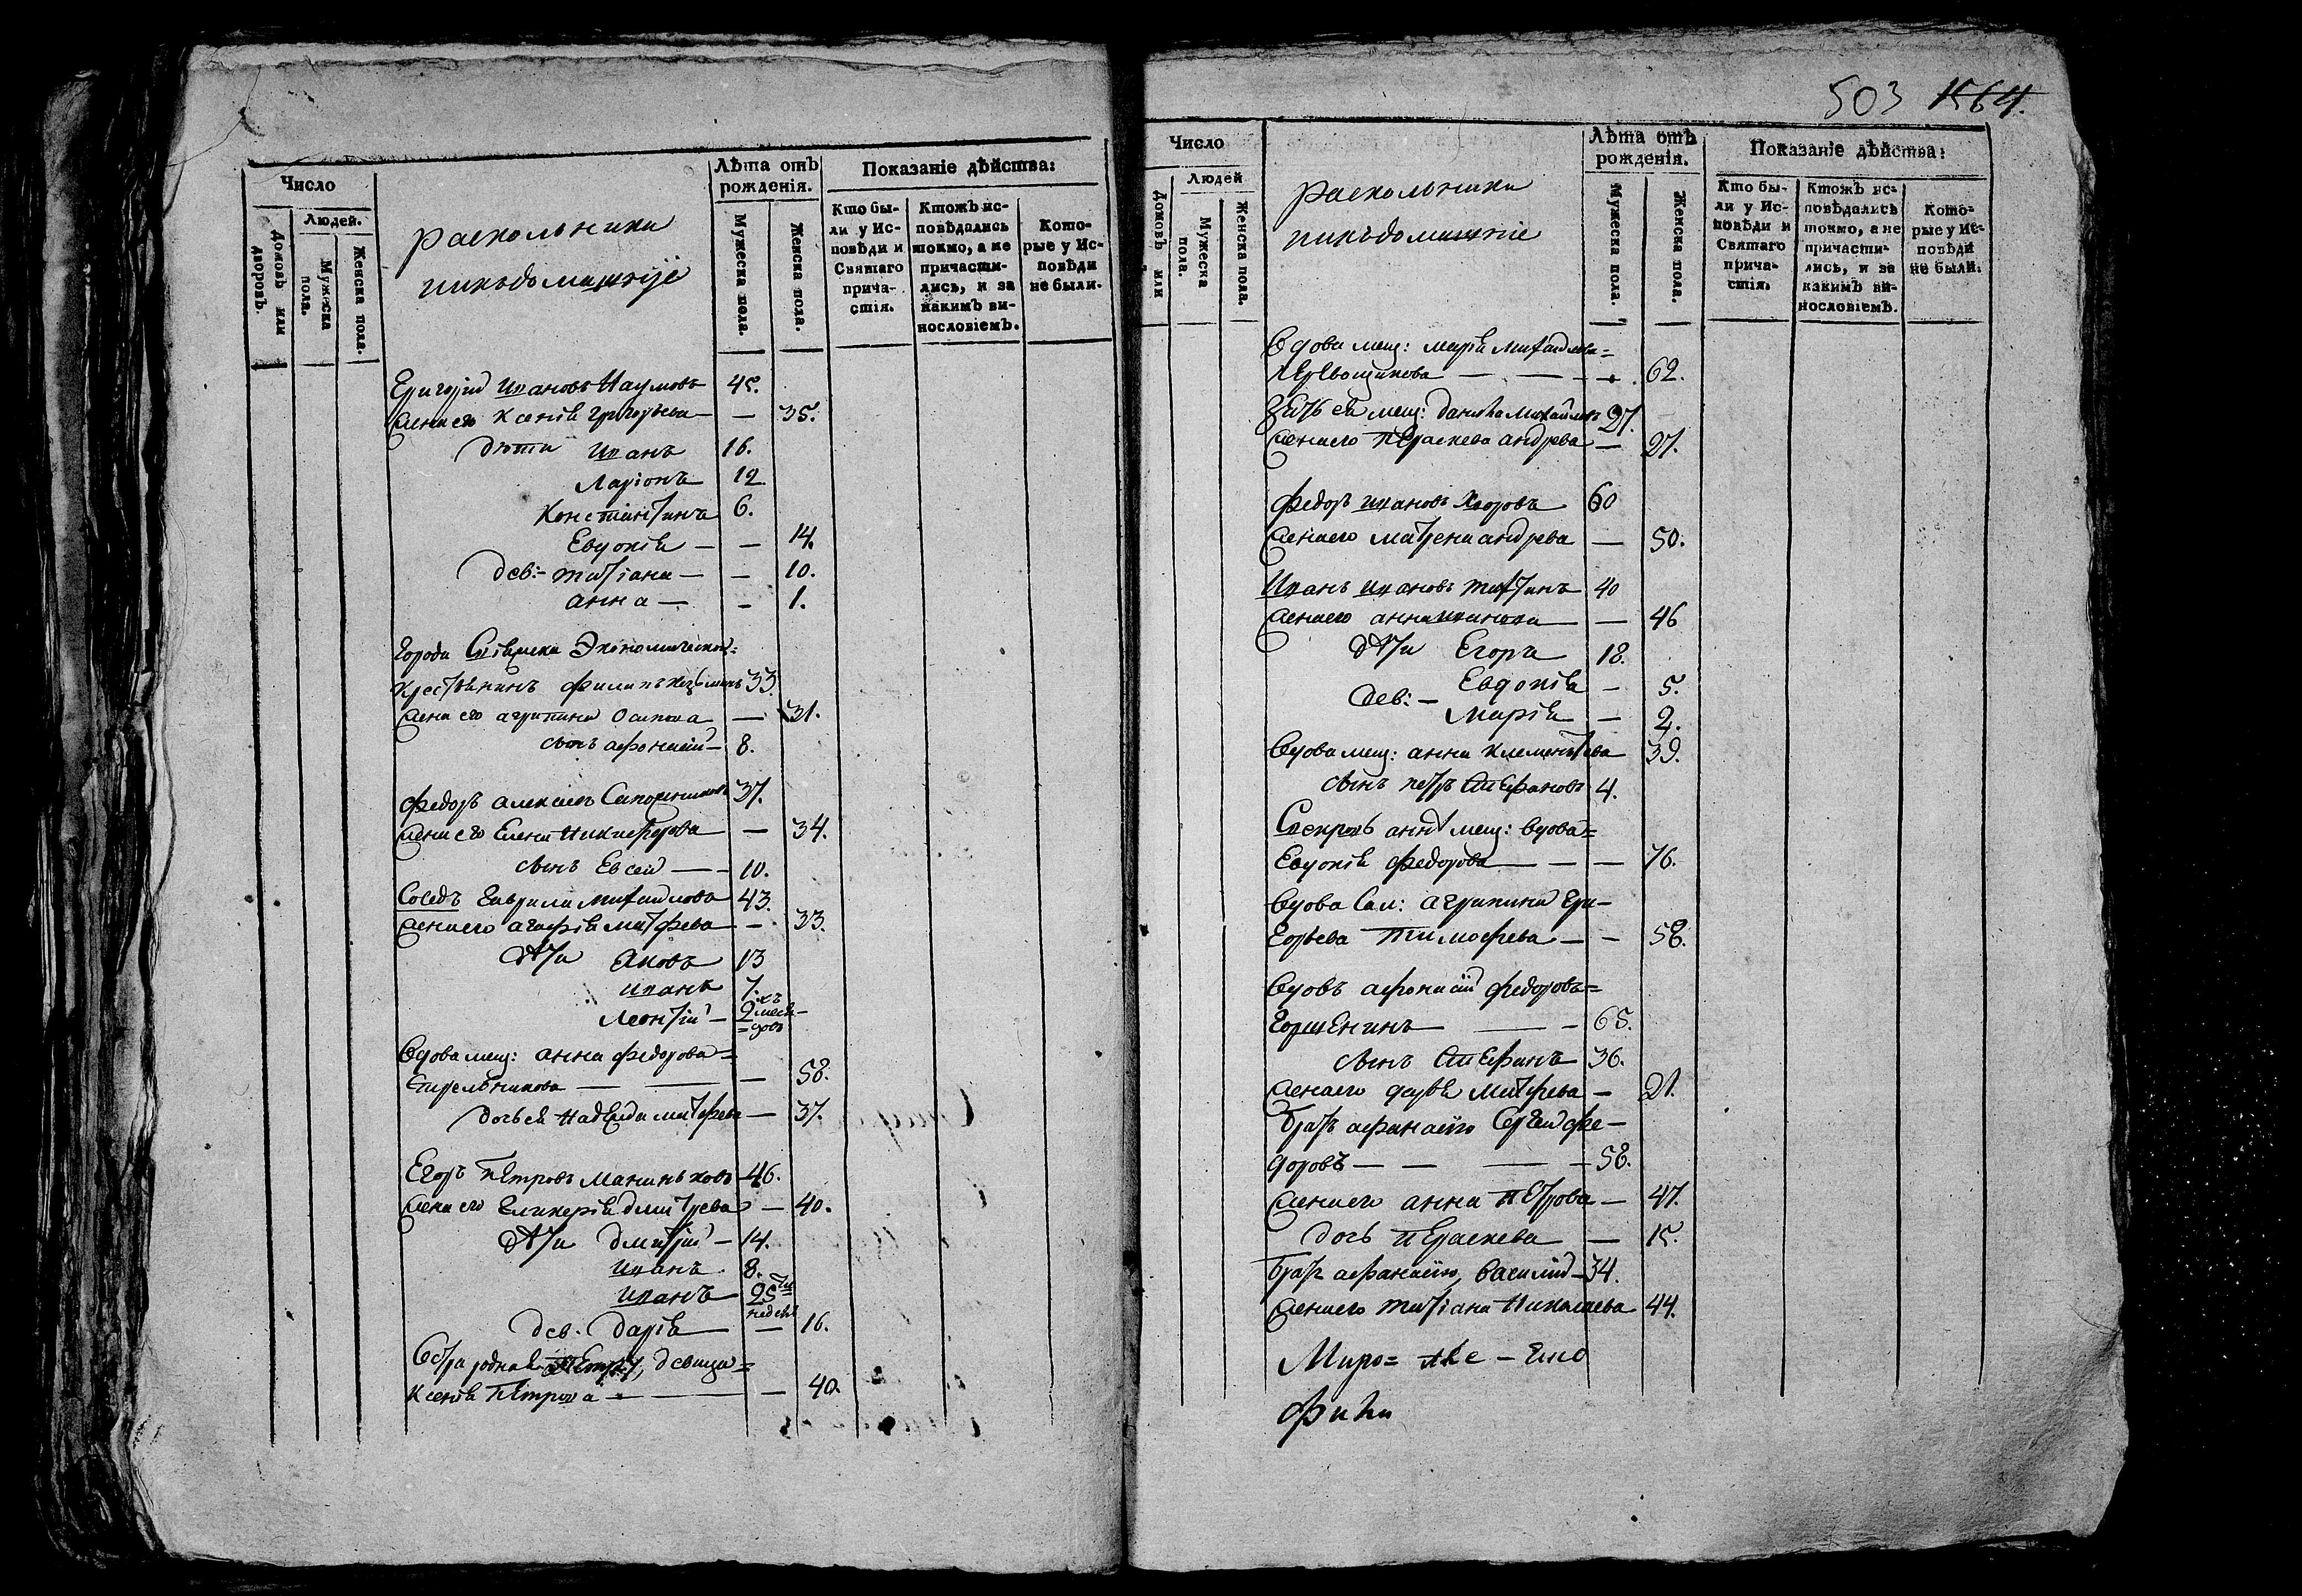 Число
Людей.
Домовъ или дворовъ.
Мужеска пола.
Женска пола.
раскольники
ихъ домашнїе
Лѣта отъ рожденія.
Мужеска пола.
Женска пола.
Показаніе дѣйства:
Кто бы-
ли у Ис-
повѣди и
Святаго
прича-
стія.
Ктожъ ис-
повѣдались
токмо, а не
причасти-
лись, и за
какимъ ви-
нословіемъ.
Кото-
рые у Ис-
повѣди
не были.
Григорій Ивановъ Наумовъ 45.
жена его Ксенія григорьева — — 35.
дѣти Иванъ 16.
Ларіонъ 12
Константинъ 6.
Евдокія — — 14.
дев:- татіана — — 10.
анна — - 1.
города Экономической=
крестьянинъ филипъ 33.
жена его агрипина Осипова — 31.
сынъ афонасій — 8.
федоръ алексѣевъ Сапожниковъ 37.
жена его Елена Никифорова — 34.
сынъ Евсей — — 10.
Соседъ Гаврила михайловъ 43.
жена его агафія матфева — - 33.
дѣти Яковъ 13
иванъ 7.
Леонтій — 2хъ меся-
=цовъ
Вдова мещ: анна федорова=
Стрельникова — — — 58.
дочь ея Надежда матфева — 37.
Егоръ Петровъ 46.
жена его Гликерія дмитрева — 40.
дѣти дмитрій — 14.
иванъ 8.
иванъ 25ти
недель
дев. дарія — — 16.
Сестра родная девица=
Ксенія Петрова — — — 40.
503 1564.
Число
Людей
Домовъ или
Мужеска пола.
Женска пола.
раскольники
ихъ домашніе
Лѣта отъ рожденія.
Мужеска пола.
Женска пола.
Показаніе дѣйства:
Кто бы-
ли у Ис-
повѣди и
Святаго
прича-
стія.
Ктожъ ис-
повѣдались
токмо, а не
причасти-
лись, и за
какимъ ви-
нословіемъ.
Кото-
рые у Ис-
повѣди
не были.
Вдова мещ: марія михайлова=
— — — 62.
Зять ея мещ: данила михайловъ 27.
жена его Параскева андрева — 27.
федоръ ивановъ Хворовъ 60
жена его матрена андрева — 50.
Иванъ ивановъ 40
жена его анна иванова — — 46
дѣти Егоръ 18.
Евдокія — 5.
дев: — Марія — 2.
Вдова мещ: анна клементьева 39.
сынъ петръ Стефановъ 4.
Свекровь мещ: вдова=
Евдокія федорова — — — 76.
Вдова Сол: агрипина Гри-
горьева тимофева — — 58.
Вдовъ афонасій федоровъ=
Горшенинъ — — 65.
сынъ Стефанъ 36.
жена его дарья матфева — 21.
братъ афанасію Сергей фе-
доровъ — — — — 58.
жена его анна Петрова — 47.
дочь Параскева — 15.
братъ афанасію, василій — 34.
жена его татіана Николаева 44.
Миро=